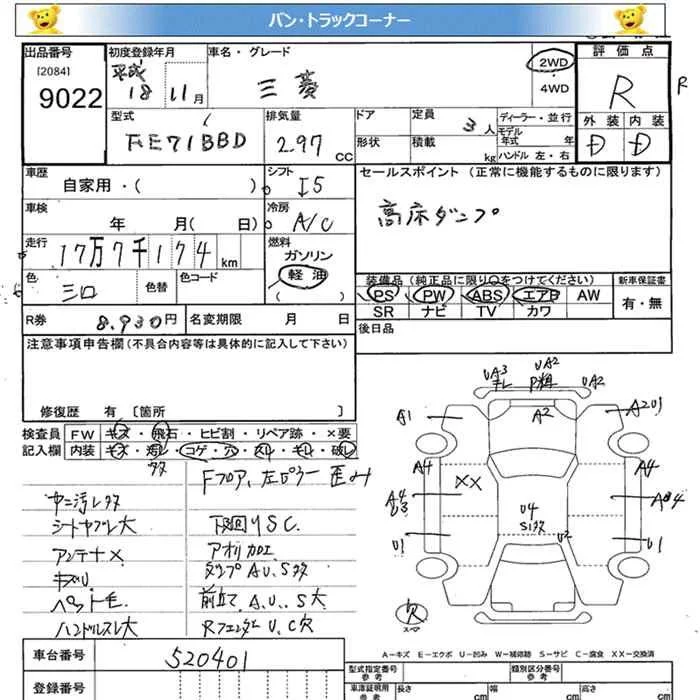 バン・トラックコーナー
出品番号 初度登録年月 車名・グレード 2WD 評価点
[2084] 平成 4WD
9022 18 11月 三菱 R R
型式 排気量 ドア 定員 ディーラー・並行 外装 内装
FE71BBD 2.97 cc 形状 積載 3人 kg モデル年式 年 D D
ハンドル 左・右
車歴 シフト セールスポイント (正常に機能するものに限ります)
自家用・( ) I5
車検 冷房 高床ダンプ
年 月( 日) A/C
走行 燃料
17万7千174km ガソリン
色 色替 色コード 軽油 装備品 (純正品に限り〇をつけてください) 新車保証書
三口 ( ) PS PW ABS エアB AW 有・無
R券 8.930円 名変期限 月 日 SR ナビ TV カワ
注意事項申告欄(不具合内容等は具体的に記入して下さい) 後日品
UA3 UA2
キレ P粗 UA2
修復歴 有 [箇所 ] A1 A2 A2U1
検査員 FW キズ・飛石・ヒビ割・リペア跡・×要
記入欄 内装 キズ・汚レ・コゲ・穴・スレ・キレ・破レ
Fフロア、左ピラー 歪み A4 XX A4
ヤニ汚レ多 A4
シートヤブレ大 下回りSC. U4
アンテナ× アオリ加工 S1多 U2
キズU ダンプAU.S多 U1 U1
ペット毛 前立て A.U..S大 欠
ハンドルスレ大 RフェンダーU.C欠 スペア
A-キズ E-エクボ U-凹み W-補修跡 S-サビ C-腐食 XX-交換済
車台番号 520401 型式指定番号 類別区分番号
登録番号 車庫証明用 長さ cm 幅 cm 高さ cm